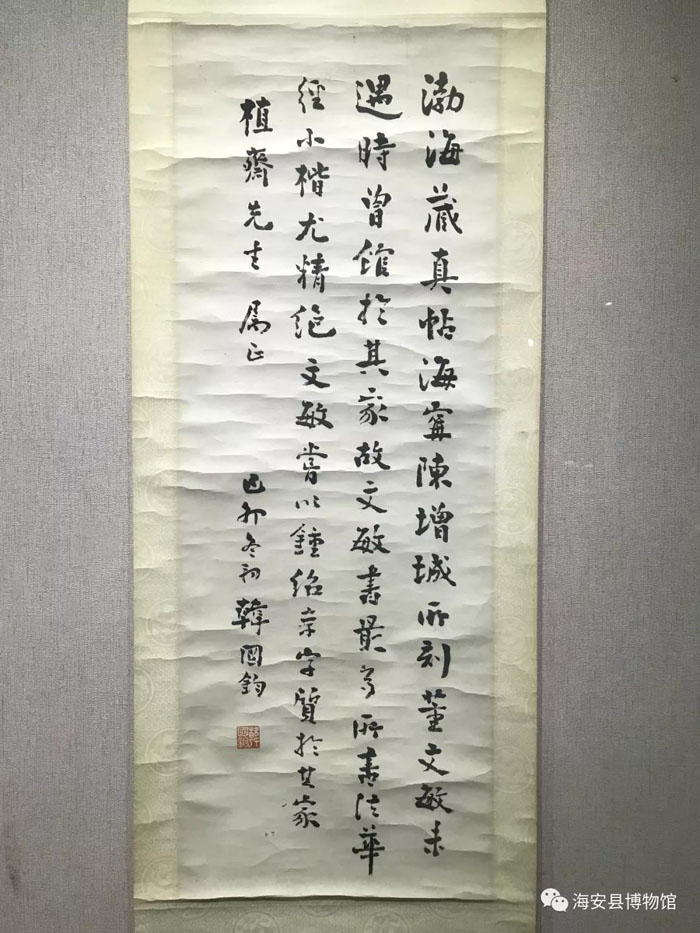 渤海藏真帖海寧陳增城所刻董文敏未
遇時曾館於其家故文敏書最多所書法華
經小楷尤精絕文敏嘗以鍾紹京字質於其家
植齋先生 属正
己卯冬初 韓國鈞
海安县博物馆